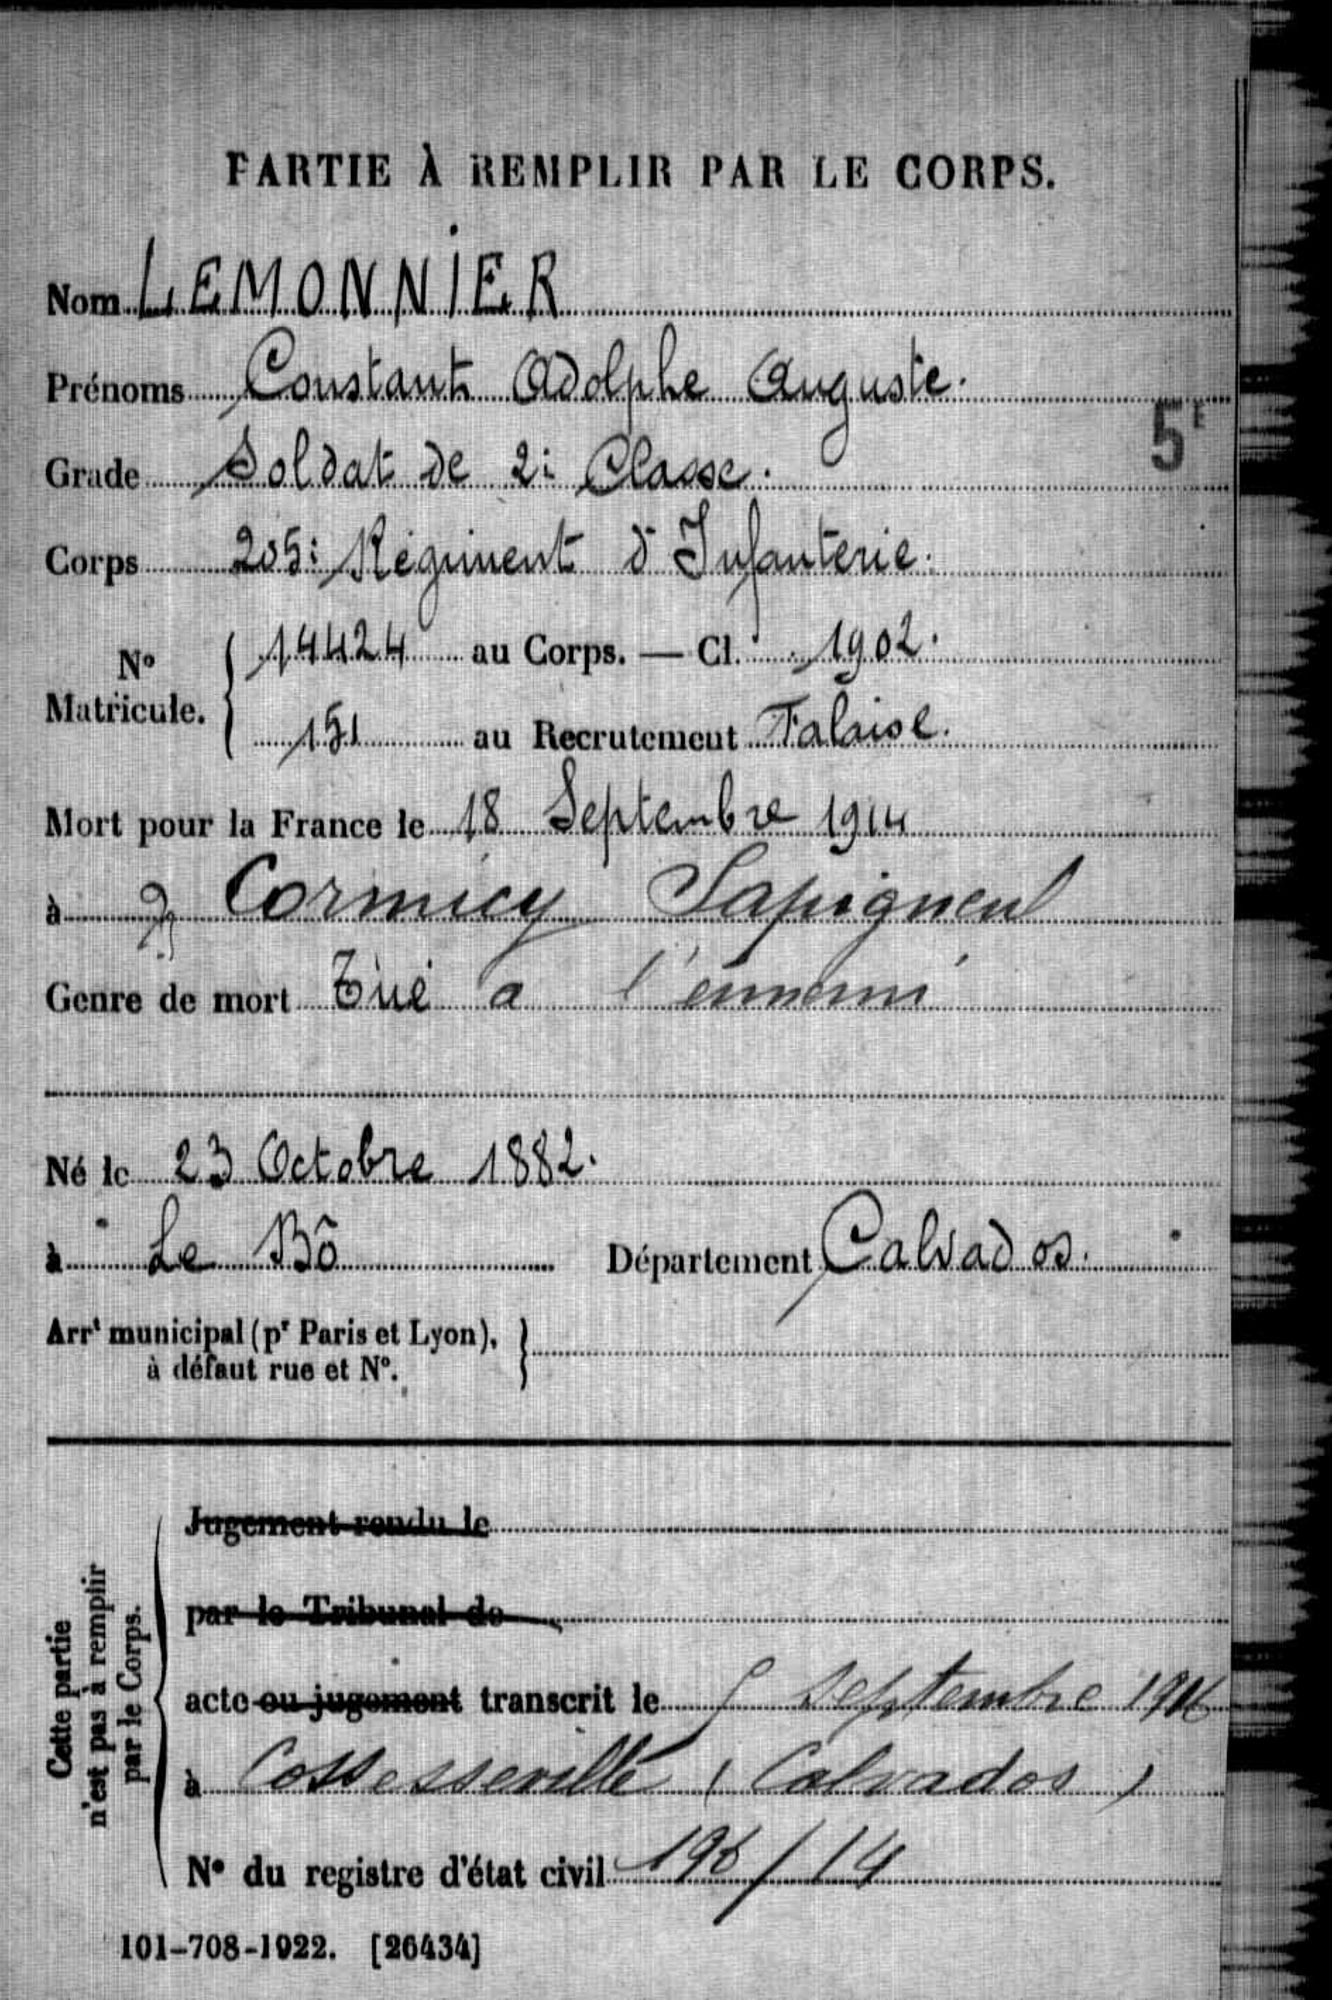 PARTIE À REMPLIR PAR LE CORPS.
Nom LEMONNIER
Prénoms Constant Adolphe Auguste.
5E
Grade Soldat de 2e Classe.
Corps 205e Régiment d'Infanterie.
No Matricule. { 14424 au Corps. — Cl. 1902.
151 au Recrutement Falaise.
Mort pour la France le 18 Septembre 1914
à Cormicy Sapigneul
Genre de mort Tué à l'ennemi
Né le 23 Octobre 1882.
à Le Bô Département Calvados.
Arrt municipal (pr Paris et Lyon), }
à défaut rue et No.
Cette partie
n'est pas à remplir
par le Corps.
Jugement rendu le
par le Tribunal de
acte ou jugement transcrit le Septembre 1916
à Cossesseville (Calvados)
No du registre d'état civil / 14
101-708-1922. [26434]